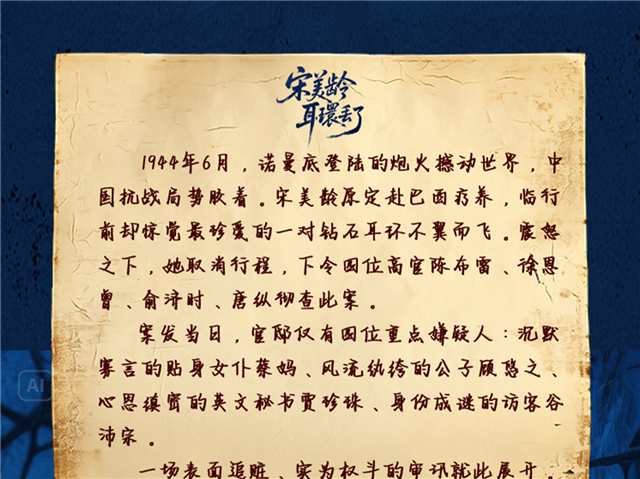 宋美龄
耳環丢了
1944年6月，诺曼底登陆的炮火撼动世界，中
国抗战局势胶着。宋美龄原定赴巴西疗养，临行
前却惊觉最珍爱的一对钻石耳环不翼而飞。震怒
之下，她取消行程，下令四位高官陈布雷、徐恩
曾、俞济时、唐纵彻查此案。
案发当日，官邸仅有四位重点嫌疑人：沉默
寡言的贴身女仆蔡妈、风流纨绔的公子顾悠之、
心思缜密的英文秘书贾珍珠、身份成谜的访客谷
沛宗。
一场表面追赃、实为权斗的审讯就此展开。
AI